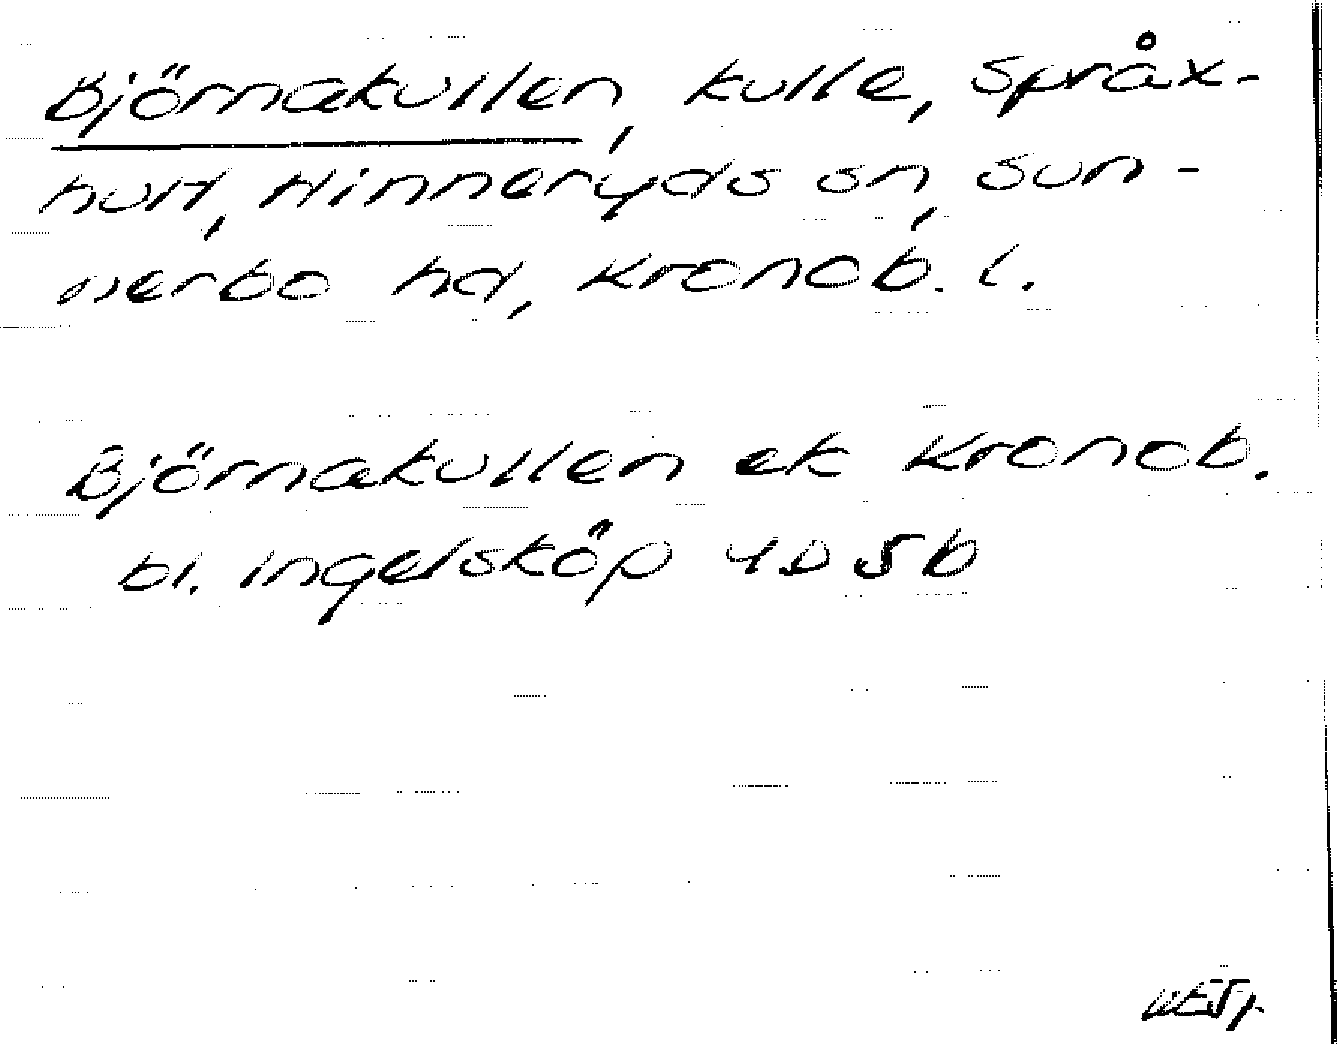 Björnakullen, kulle, Språx-
hult, Hinneryds sn, Sun-
nerbo hd, Kronob. l.
Björnakullen ek Kronob.
bl. Ingelsköp 4D 5b